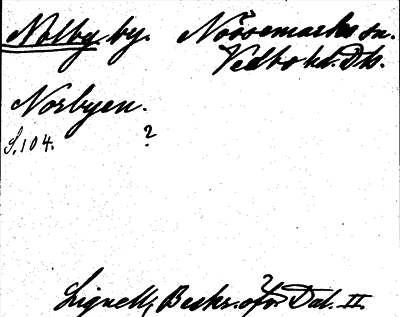 Nolby by. Nössemarks sn.
Vedbo hd. Ds.
Norbyen.
S. 104. ?
Lignell, Beskr. öfv. Dal. II.